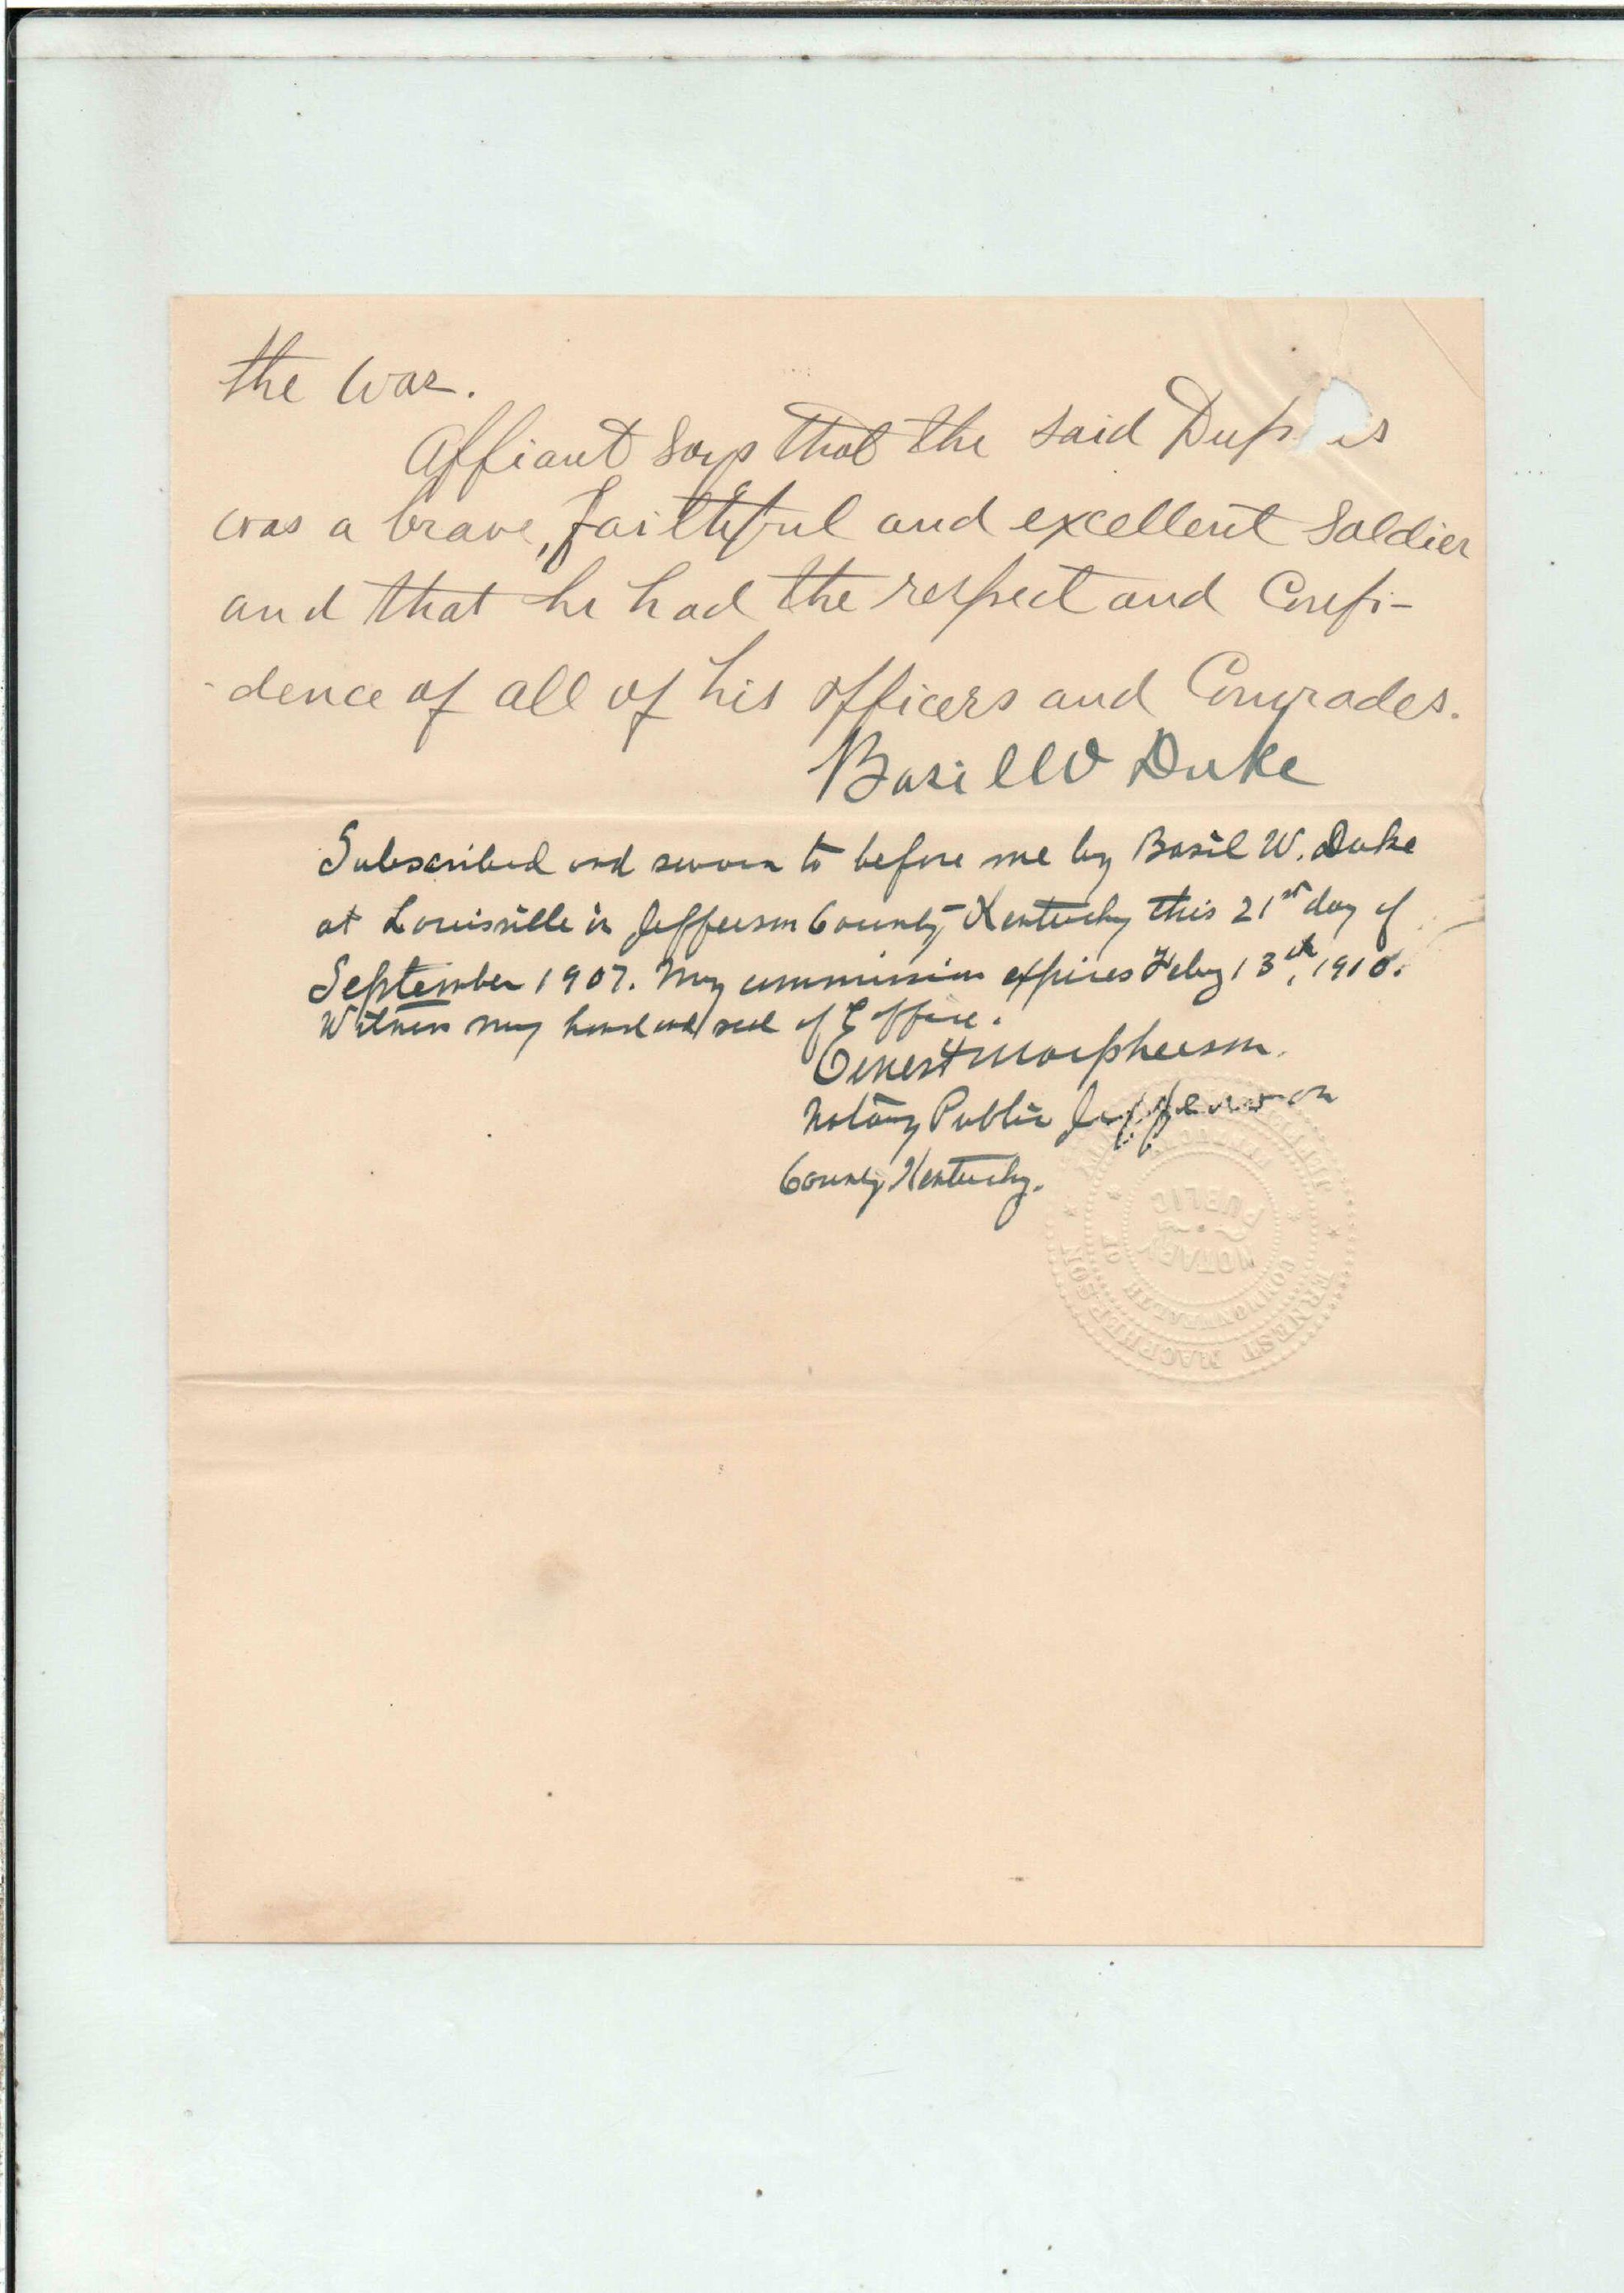 the war.
Affiant says that the said Dup is
was a brave, faithful and excellent soldier
and that he had the respect and Confi-
-dence of all of his officers and Comrades.
Basil W Duke
Subscribed and sworn to before me by Basil W. Duke
at Louisville in Jefferson County Kentucky this 21st day of
September 1907. My commission expires Feby 13th, 1910.
Witness my hand and seal of office.
Ernest Macpherson.
Notary Public Jefferson
County Kentucky.
ERNEST MACPHERSON
COMMONWEALTH OF KENTUCKY
NOTARY
PUBLIC